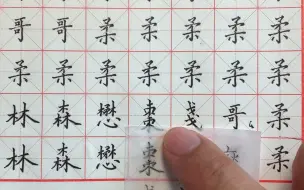 哥哥柔柔柔柔柔
柔柔柔柔柔柔柔
林森懋棗戔哥柔
林森懋棗